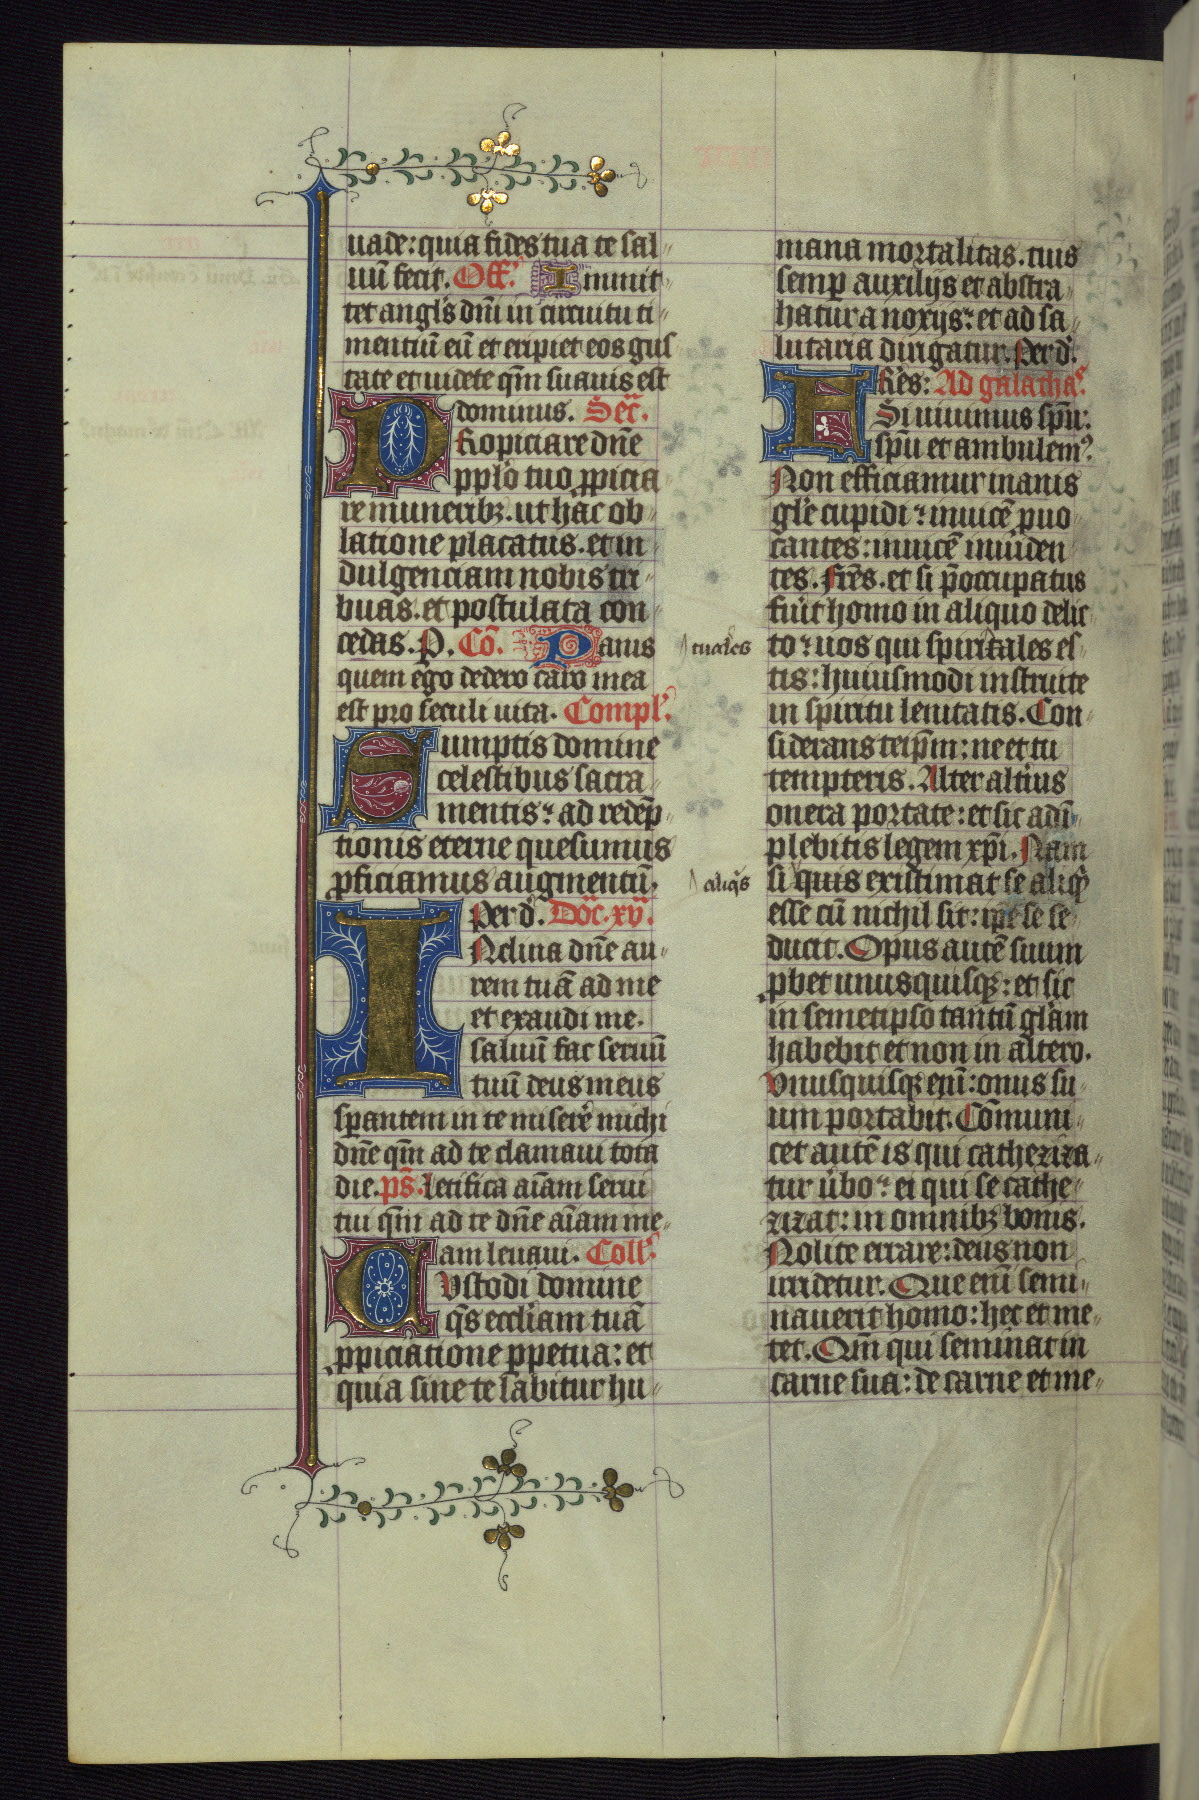 uade: quia fides tua te sal
uū fecit. Off. Inmit
tet angl's dn̄i in circuitu ti
mentiū eū et eripiet eos gus
tate et uidete qm̄ suauis est
dominus. Sec̄.
Propiciare dn̄e
pplō tuo, ppicia
re munerib; . ut hac ob
latione placatus. et in
dulgenciam nobis tri
buas. et postulata con
cedas. P. Cō. Panis
quem ego dedero caro mea
est pro seculi uita. Compl'.
Sumptis domine
celestibus sacra
mentis: ad redēp
tionis eterne quesumus
pficiamus augmentū.
Per d. Dōc. xv.
INclina dn̄e au
rem tuā ad me
et exaudi me.
saluū fac seruū
tuū deus meus
sp̄antem in te miserē michi
dn̄e qm̄ ad te clamaui tota
die. ps̄. Letifica aīam serui
tui qm̄ ad te dn̄e aīam me
am leuaui. Coll'.
CVstodi domine
q̄s eccl̄iam tuā
ppiciatione ppetua: et
quia sine te labitur hu
mana mortalitas. tuis
semp auxilijs et abstra
hatur a noxijs: et ad sa
lutaria dirigatur. Per d.
Frēs: Ad galatha's.
Si uiuimus spū:
spū et ambulem'.
Non efficiamur inanis
gl'e cupidi: inuicē puo
cantes: inuicē inuiden
tes. Frēs. et si p̄occupatus
fuūt homo in aliquo delic
tuales to: uos qui spiritales es
tis: huiusmodi instruite
in spiritu lenitatis. Con
siderans teipm̄: ne et tu
tempteris. Alter altius
onera portate: et sic adī
plebitis legem xp̄i. Nam
aliq's si quis existimat se aliq'
esse cū nichil sit: ip̄e se se
ducit. Opus autē suum
pbet unusquisq;: et sic
in semetipso tantū gl'am
habebit et non in altero.
Vnusquisq; enī: onus su
um portabit. Cōmuni
cet autē is qui catheziza
tur ūbo: ei qui se cathe
zizat: in omnib; bonis.
Nolite errare: deus non
irridetur. Que enī semi
nauerit homo: hec et me
tet. Qm̄ qui seminat in
carne sua: de carne et me